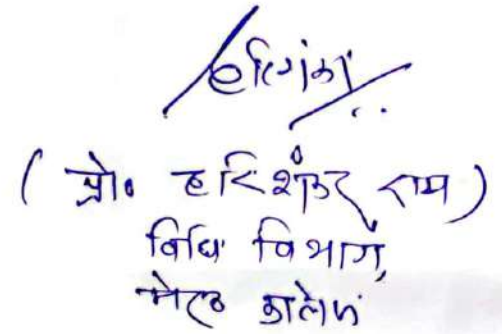 हरिशंकर
( प्रो० हरिशंकर राय )
विधि विभाग,
मेरठ कालेज